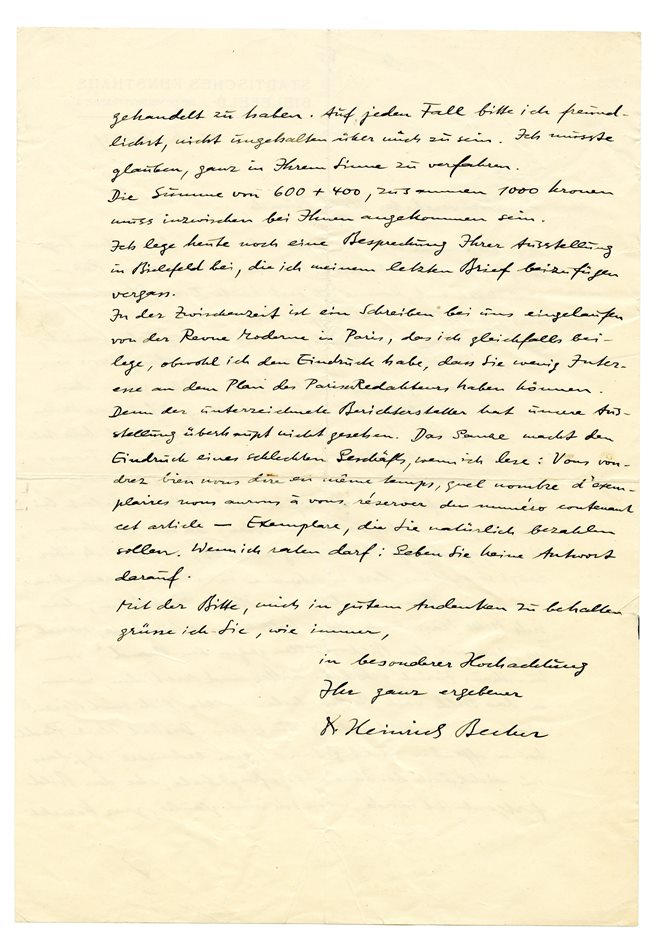 gehandelt zu haben. Auf jeden Fall bitte ich freund-
lichst, nicht ungehalten über mich zu sein. Ich musste
glauben, ganz in Ihrem Sinne zu verfahren.
Die Summe von 600 + 400, zusammen 1000 Kronen
muss inzwischen bei Ihnen angekommen sein.
Ich lege heute noch eine Besprechung Ihrer Ausstellung
in Bielefeld bei, die ich meinem letzten Brief beizufügen
vergass.
In der Zwischenzeit ist ein Schreiben bei uns eingelaufen
von der Revue Moderne in Paris, das ich gleichfalls bei-
lege, obwohl ich den Eindruck habe, dass Sie wenig Inter-
esse an dem Plan des Paris Redakteurs haben können.
Denn der unterzeichnete Berichterstatter hat unsere Aus-
stellung überhaupt nicht gesehen. Das Ganze macht den
Eindruck eines schlechten Geschäfts, wenn ich lese: Vous vou-
drez bien nous dire en même temps, quel nombre d'exem-
plaires nous aurons à vous réserver du numéro contenant
cet article — Exemplare, die Sie natürlich bezahlen
sollen. Wenn ich raten darf: Geben Sie keine Antwort
darauf.
Mit der Bitte, mich in gutem Andenken zu behalten
grüsse ich Sie, wie immer,
in besonderer Hochachtung
Ihr ganz ergebener
Dr Heinrich Becker
STÄDTISCHES KUNSTHAUS